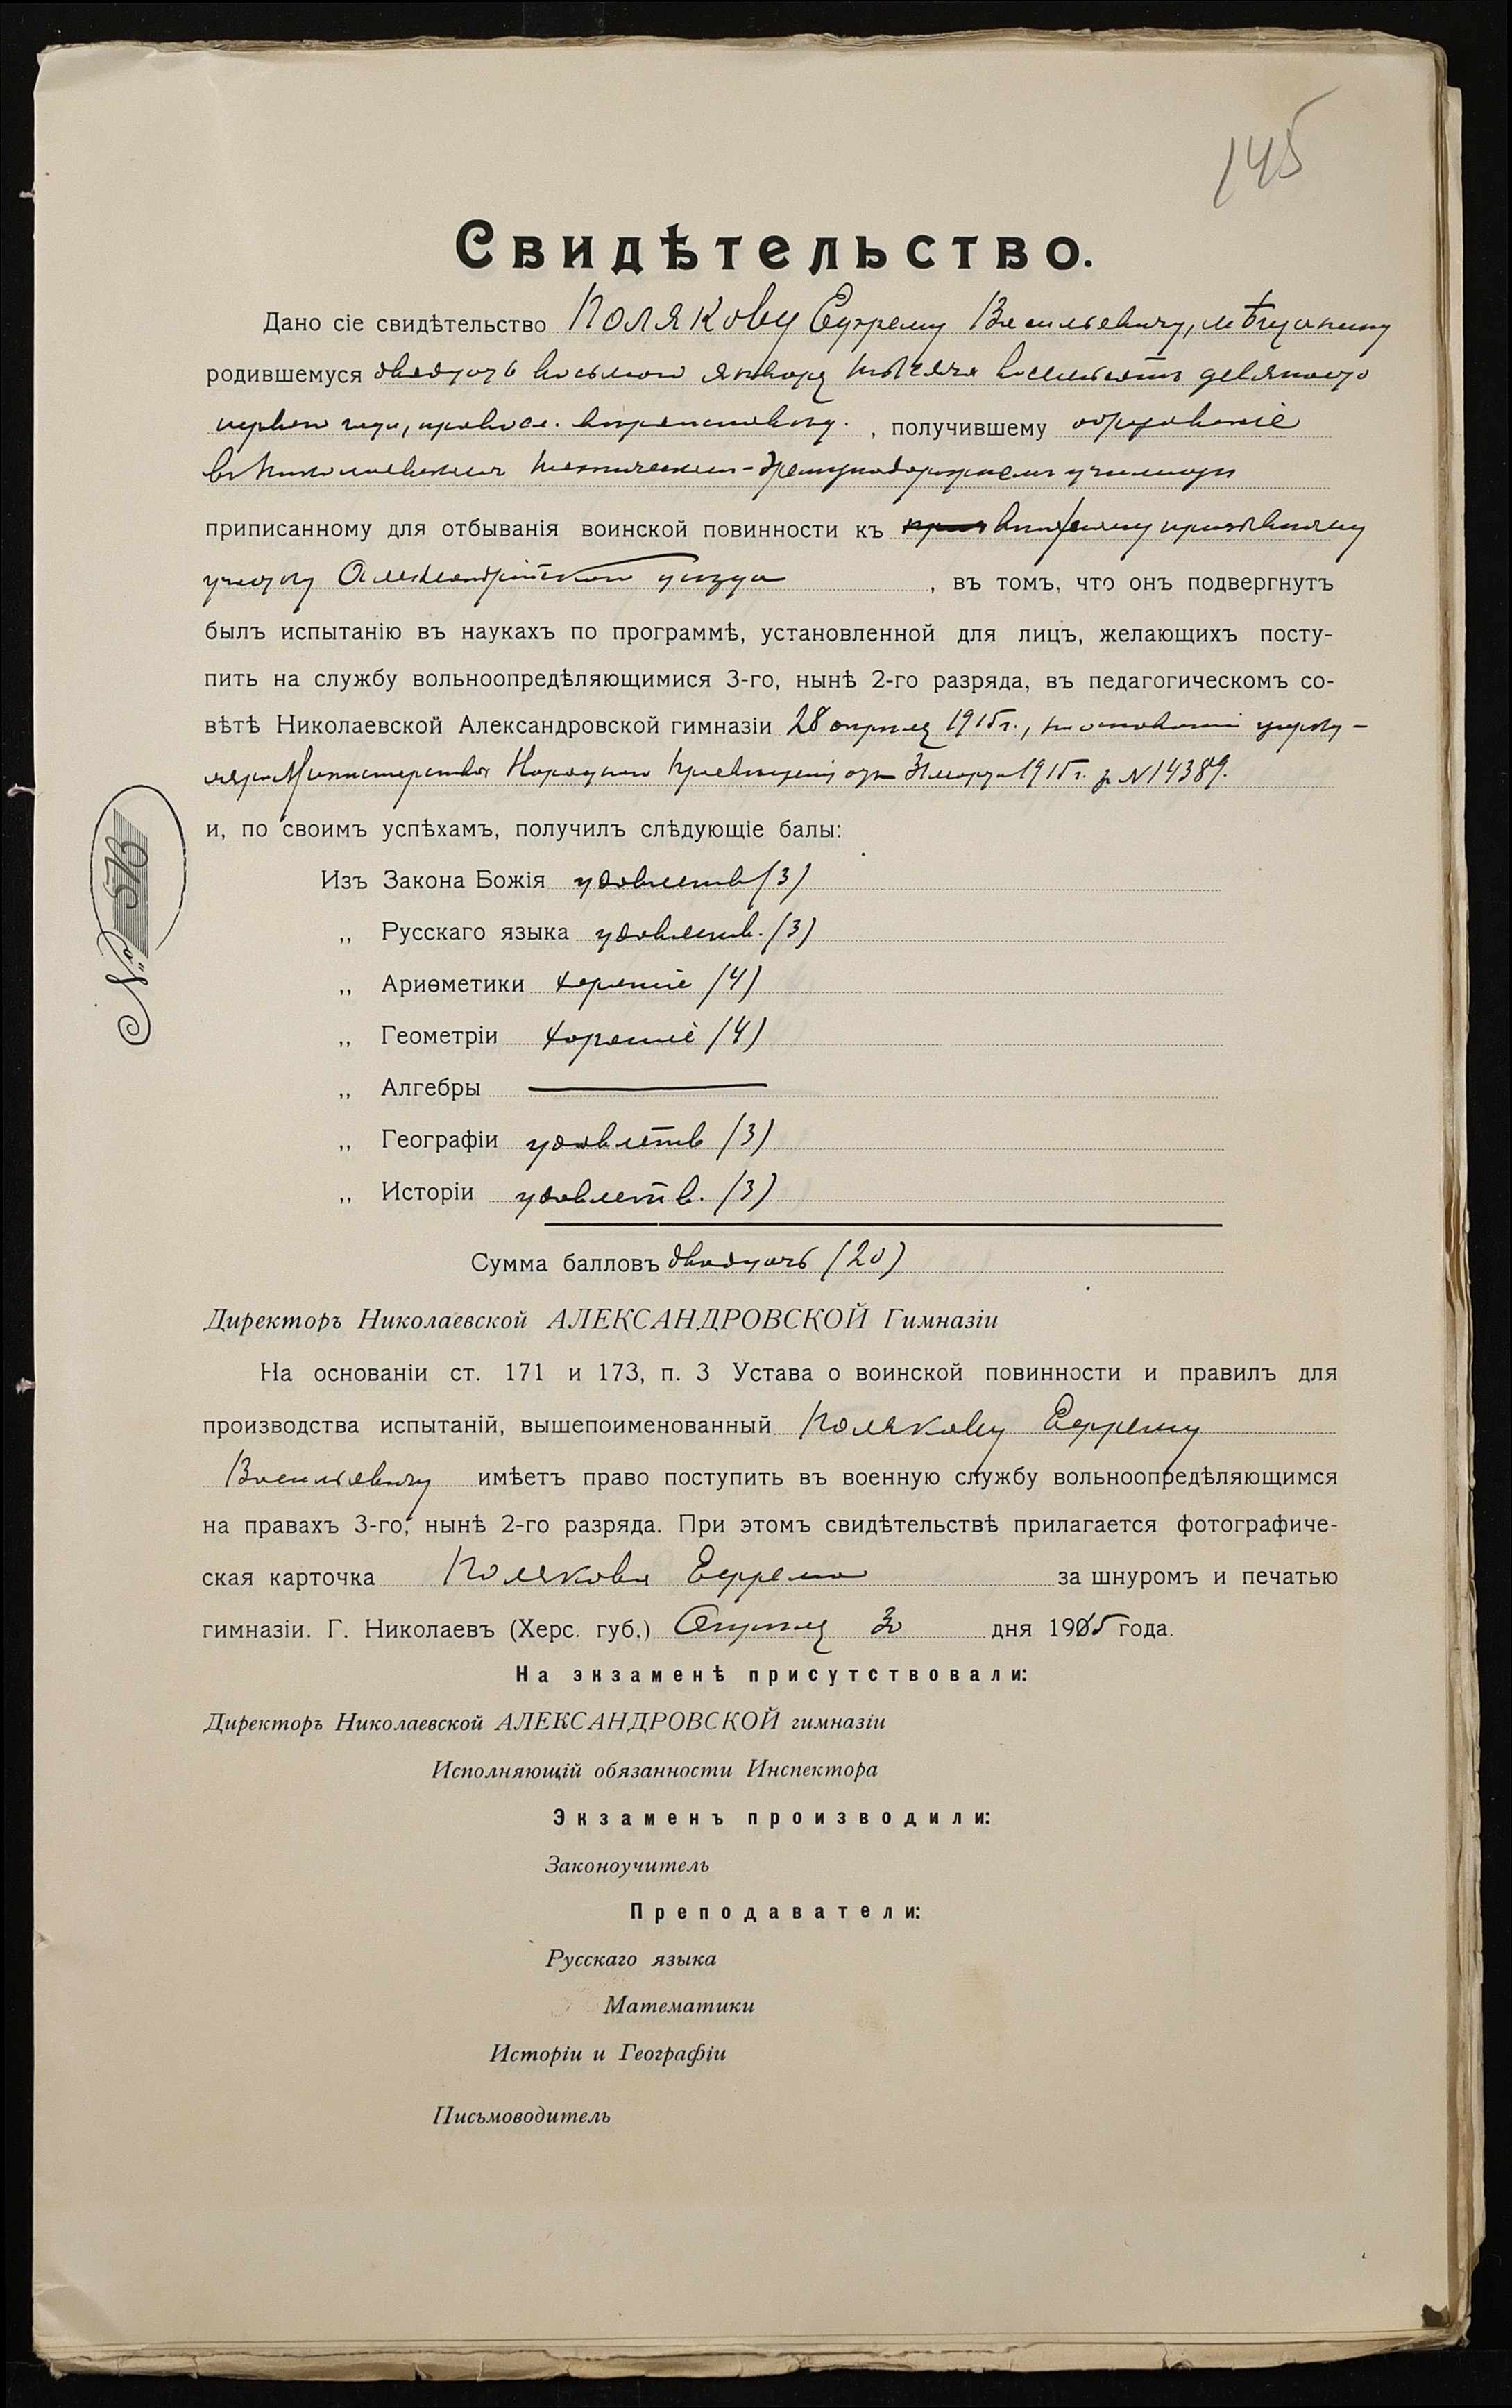 145
Свидѣтельство.
Дано сіе свидѣтельство Полякову Ефрему Васильевичу, мѣщанину
родившемуся двадцать восьмого января тысяча восемьсотъ девяносто
перваго года, правосл. вѣроисповѣд. , получившему образованіе
въ Николаевскомъ техническомъ-желѣзнодорожномъ училищѣ
приписанному для отбыванія воинской повинности къ призывному
участку Александрійскаго уѣзда , въ томъ, что онъ подвергнутъ
былъ испытанію въ наукахъ по программѣ, установленной для лицъ, желающихъ посту-
пить на службу вольноопредѣляющимися 3-го, нынѣ 2-го разряда, въ педагогическомъ со-
вѣтѣ Николаевской Александровской гимназіи 28 апрѣля 1915 г., на основаніи цирку-
ляра Министерства Народнаго Просвѣщенія отъ 31 марта 1915 г. за N 14389.
и, по своимъ успѣхамъ, получилъ слѣдующіе балы:
Изъ Закона Божія удовлетв (3)
„ Русскаго языка удовлетв. (3)
„ Ариѳметики хорошіе (4)
„ Геометріи хорошіе (4)
„ Алгебры
„ Географіи удовлетв (3)
„ Исторіи удовлетв. (3)
Сумма балловъ двадцать (20)
Директоръ Николаевской АЛЕКСАНДРОВСКОЙ Гимназіи
На основаніи ст. 171 и 173, п. 3 Устава о воинской повинности и правилъ для
производства испытаній, вышепоименованный Полякову Ефрему
Васильевичу имѣетъ право поступить въ военную службу вольноопредѣляющимся
на правахъ 3-го, нынѣ 2-го разряда. При этомъ свидѣтельствѣ прилагается фотографиче-
ская карточка Полякова Ефрема за шнуромъ и печатью
гимназіи. Г. Николаевъ (Херс. губ.) Апрѣля 30 дня 1915 года.
На экзаменѣ присутствовали:
Директоръ Николаевской АЛЕКСАНДРОВСКОЙ гимназіи
Исполняющій обязанности Инспектора
Экзаменъ производили:
Законоучитель
Преподаватели:
Русскаго языка
Математики
Исторіи и Географіи
Письмоводитель